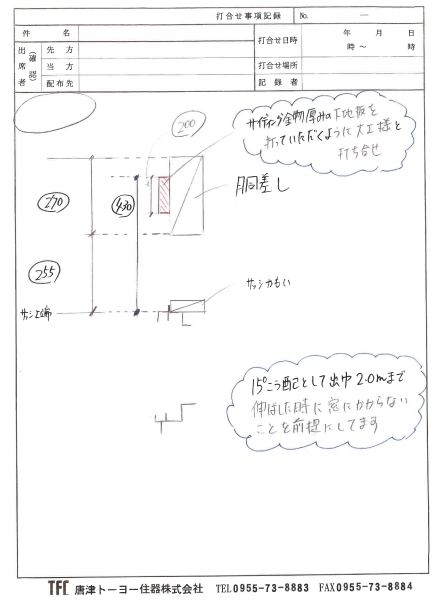 打合せ事項記録 No. —
件名
出席者(確認) 先方
当方
配布先
打合せ日時 年 月 日
時〜 時
打合せ場所
記録者
200
サイディング金物厚みの下地板を
打っていただくように大工様と
打ち合せ
270
430
胴差し
255
サッシかもい
サッシ上端
15°こう配として出巾2.0mまで
伸ばした時に窓にかからない
ことを前提にしてます
TFC 唐津トーヨー住器株式会社 TEL 0955-73-8883 FAX 0955-73-8884